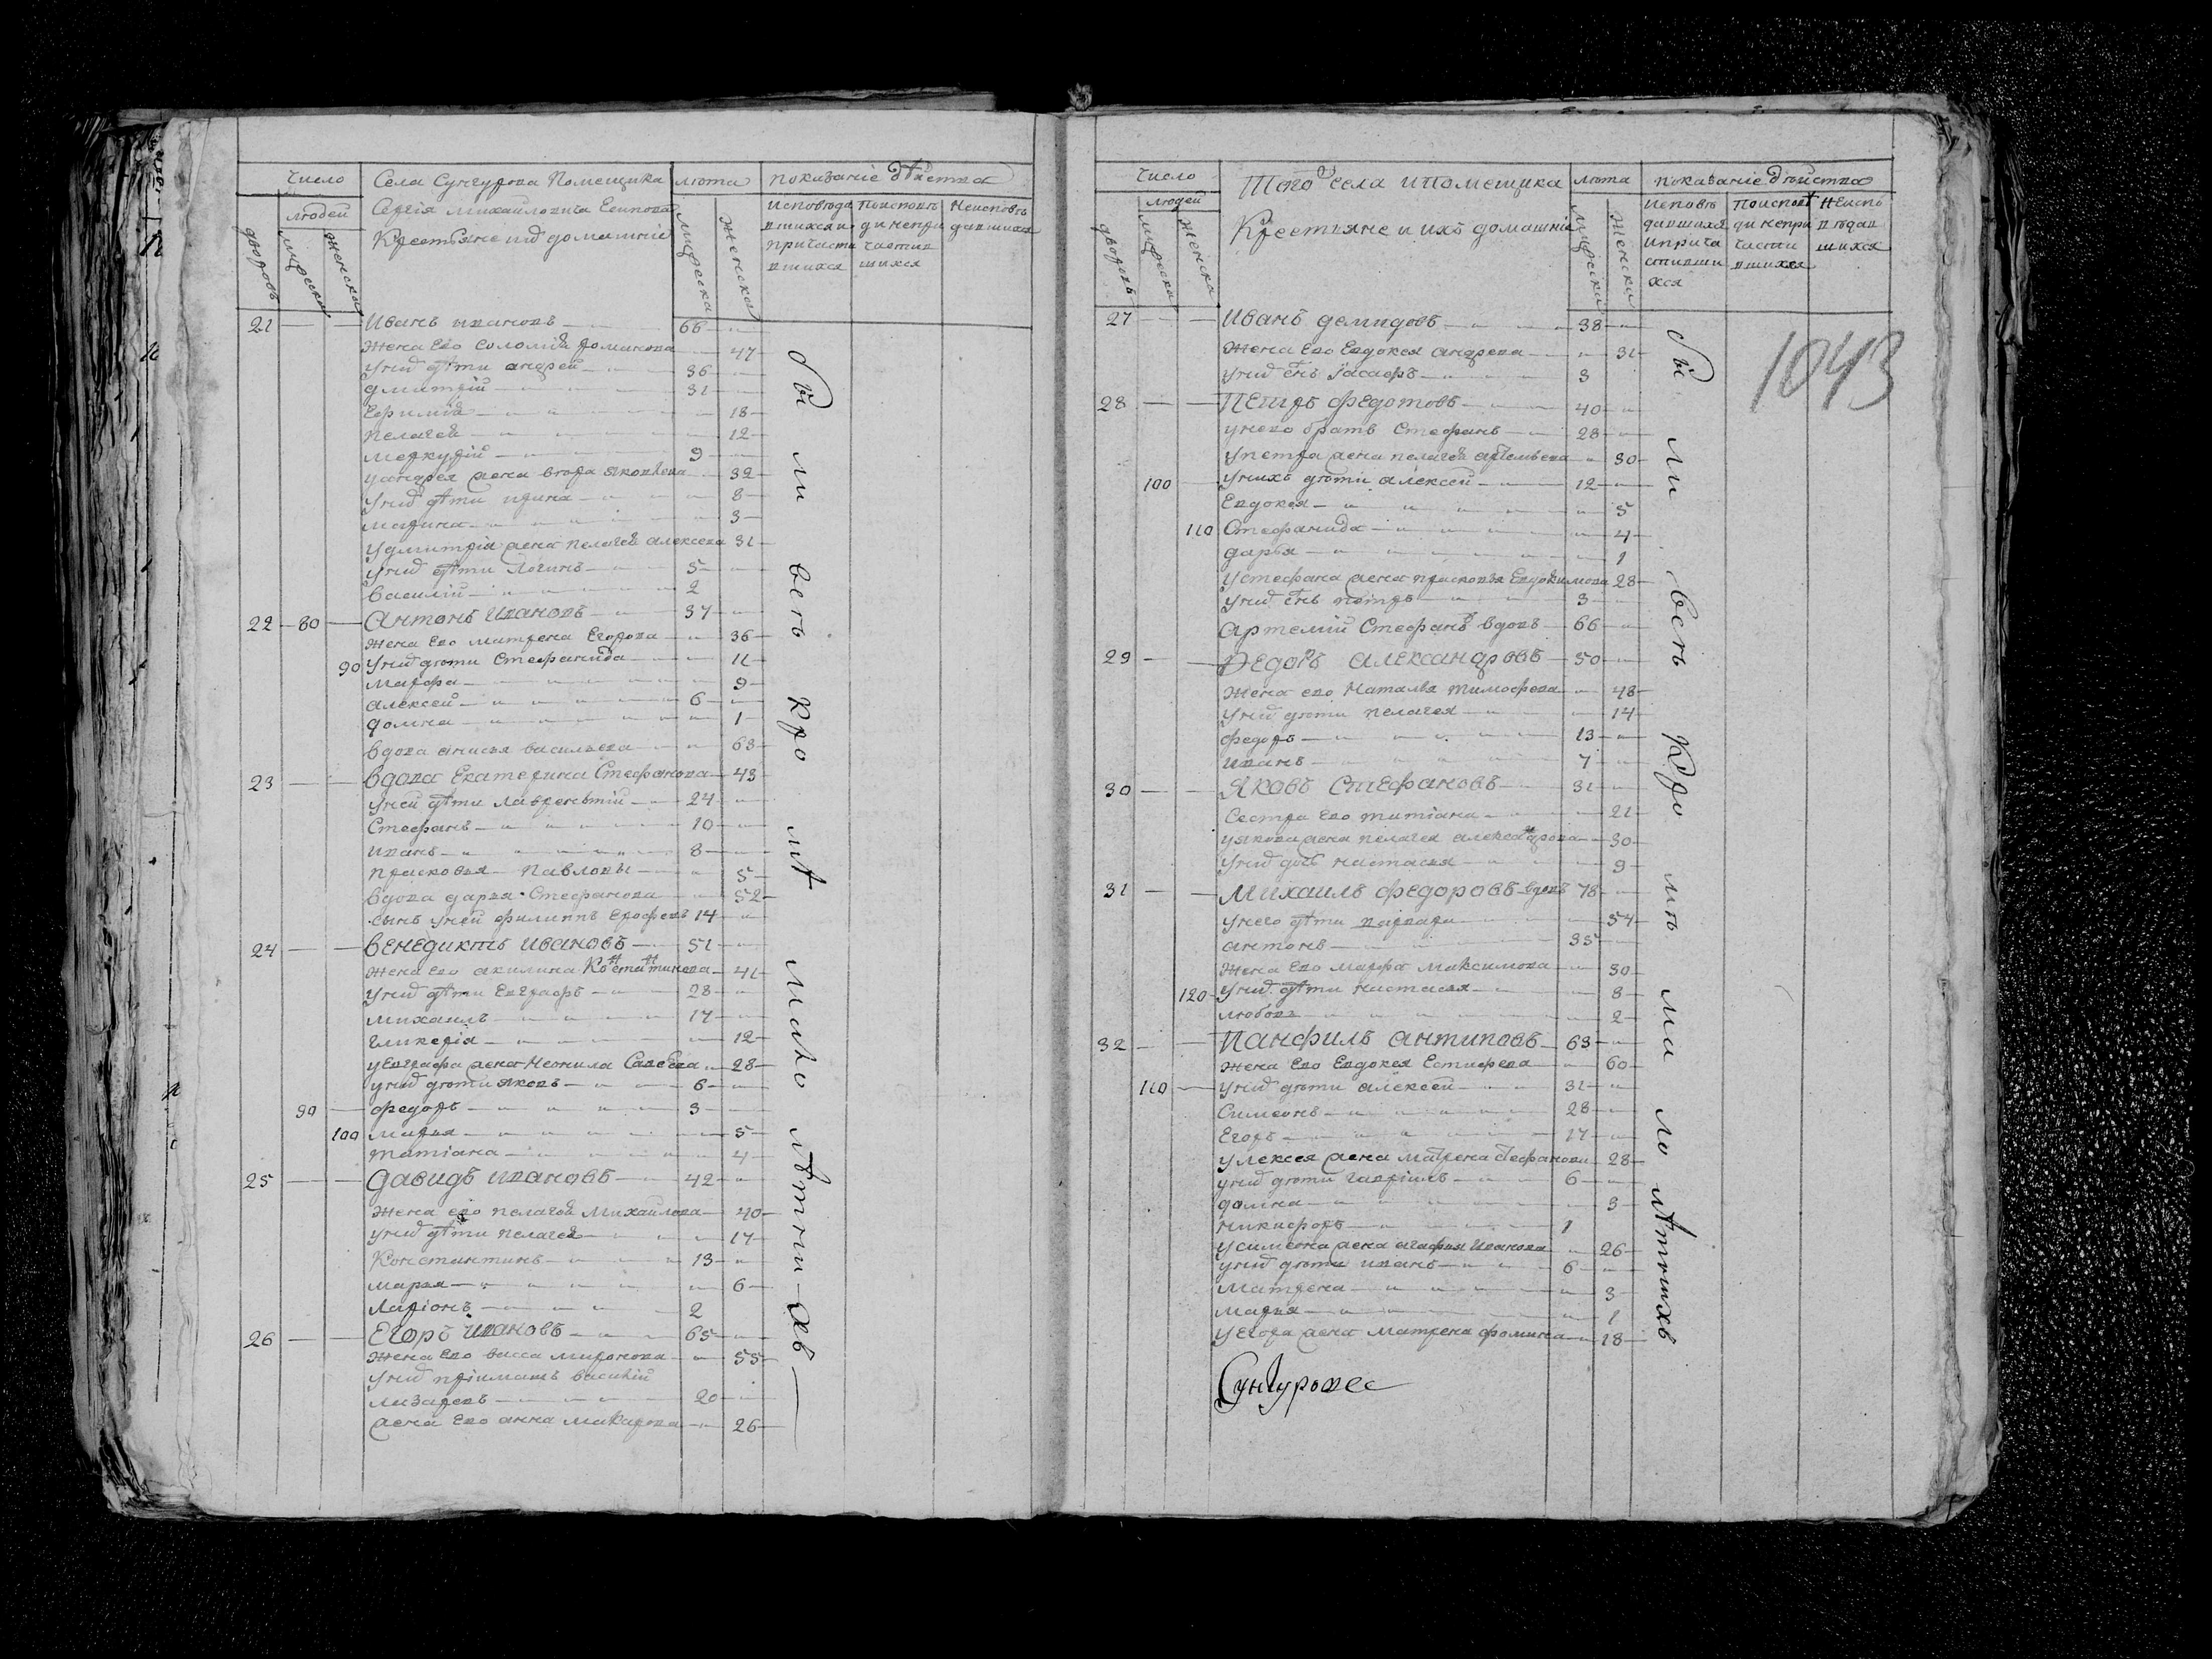 Число
людей
дворовъ
мужеска
женска
Села Сунгурова Помещика
Сергія михайловича Есипова
Крестьяне ихъ домашніе
лѣта
мужеска
женска
показаніе дѣйства
исповѣда
вшихся и
причасти
вшихся
поисповѣ
ди непри
частив
шихся
Неисповѣ
давшихся
21 Иванъ ивановъ 66
жена Ево соломіа романова 47
У нихъ дѣти андрей 36
дмитрій 31
Ефимиа 18
пелагея 12
меркурій 9
у андрея жена вторая яковлева 32
У нихъ дѣти ирина 8
марина 3
у дмитрія жена пелагея алексеева 31
у нихъ дѣти логинъ 5
василій 2
22 80 Антонъ Ивановъ 37
жена Ево матрена Егорова 36
90 У нихъ дѣти Стефанида 11
марфа 9
алексей 6
домна 1
вдова анисья васильева 63
23 вдова Екатерина Стефанова 43
у ней дѣти лаврентій 24
Стефанъ 10
иванъ 8
прасковья Павловы 5
вдова дарья Стефанова 52
сынъ у ней филиппъ Ерофеевъ 14
24 венедиктъ ивановъ 51
жена Ево акилина Константинова 41
У нихъ дѣти Евграфъ 28
михаилъ 17
гликерія 12
у Евграфа жена Неонила Савельева 28
у нихъ дѣти яковъ 6
90 федоръ 3
100 марья 5
татіана 4
25 Давидъ ивановъ 42
жена ево пелагея Михайлова 40
у нихъ дѣти пелагея 17
Константинъ 13
марья 6
ларіонъ 2
26 Егоръ ивановъ 65
жена Ево васса миронова 55
у нихъ пріимышъ василій
лазаревъ 20
жена Ево анна макарова 26
бы ли всѣ кро мѣ мало лѣтни хъ
Число
людей
дворовъ
мужеска
женска
Того села и помещика
Крестьяне и ихъ домашніе
лѣта
мужеска
женска
показаніе дѣйства
исповѣ
давшихся
и прича
стивши
хся
поисповѣ
ди непри
части
вшихся
Неиспо
вѣдав
шихся
1043
27 Иванъ демидовъ 38
жена Ево Евдокея андреева 31
у нихъ сынъ Іасафъ 3
28 Петръ федотовъ 40
у него братъ Стефанъ 28
у петра жена пелагея артемьева 30
100 у нихъ дѣти алексей 12
Евдокея 5
110 Стефанида 4
дарья 1
у стефана жена прасковья Евдокимова 28
у нихъ сынъ петръ 3
артемій Стефановъ вдовъ 66
29 Федоръ александровъ 50
жена ево Наталья тимофеева 48
у нихъ дѣти пелагея 14
федоръ 13
иванъ 7
30 Яковъ Стефановъ 31
Сестра Ево татіана 21
у якова жена пелагея александрова 30
у нихъ дочь настасья 9
31 Михаилъ федоровъ вдовъ 78
у него дѣти варвара 54
антонъ 35
жена Ево марфа Максимова 30
120 у нихъ дѣти настасья 8
любовь 2
32 Панфилъ антиповъ 63
жена Ево Евдокея Естифеева 60
110 у нихъ дѣти алексей 31
Симеонъ 28
Егоръ 17
у алексея жена матрена стефанова 28
у нихъ дѣти гавріилъ 6
домна 3
никифоръ 1
у симеона жена агафья Иванова 26
у нихъ дѣти иванъ 6
матрена 3
марья 1
у Егора жена матрена фомина 18
бы ли всѣ кро мѣ ма ло лѣтнихъ
Сунгуровес